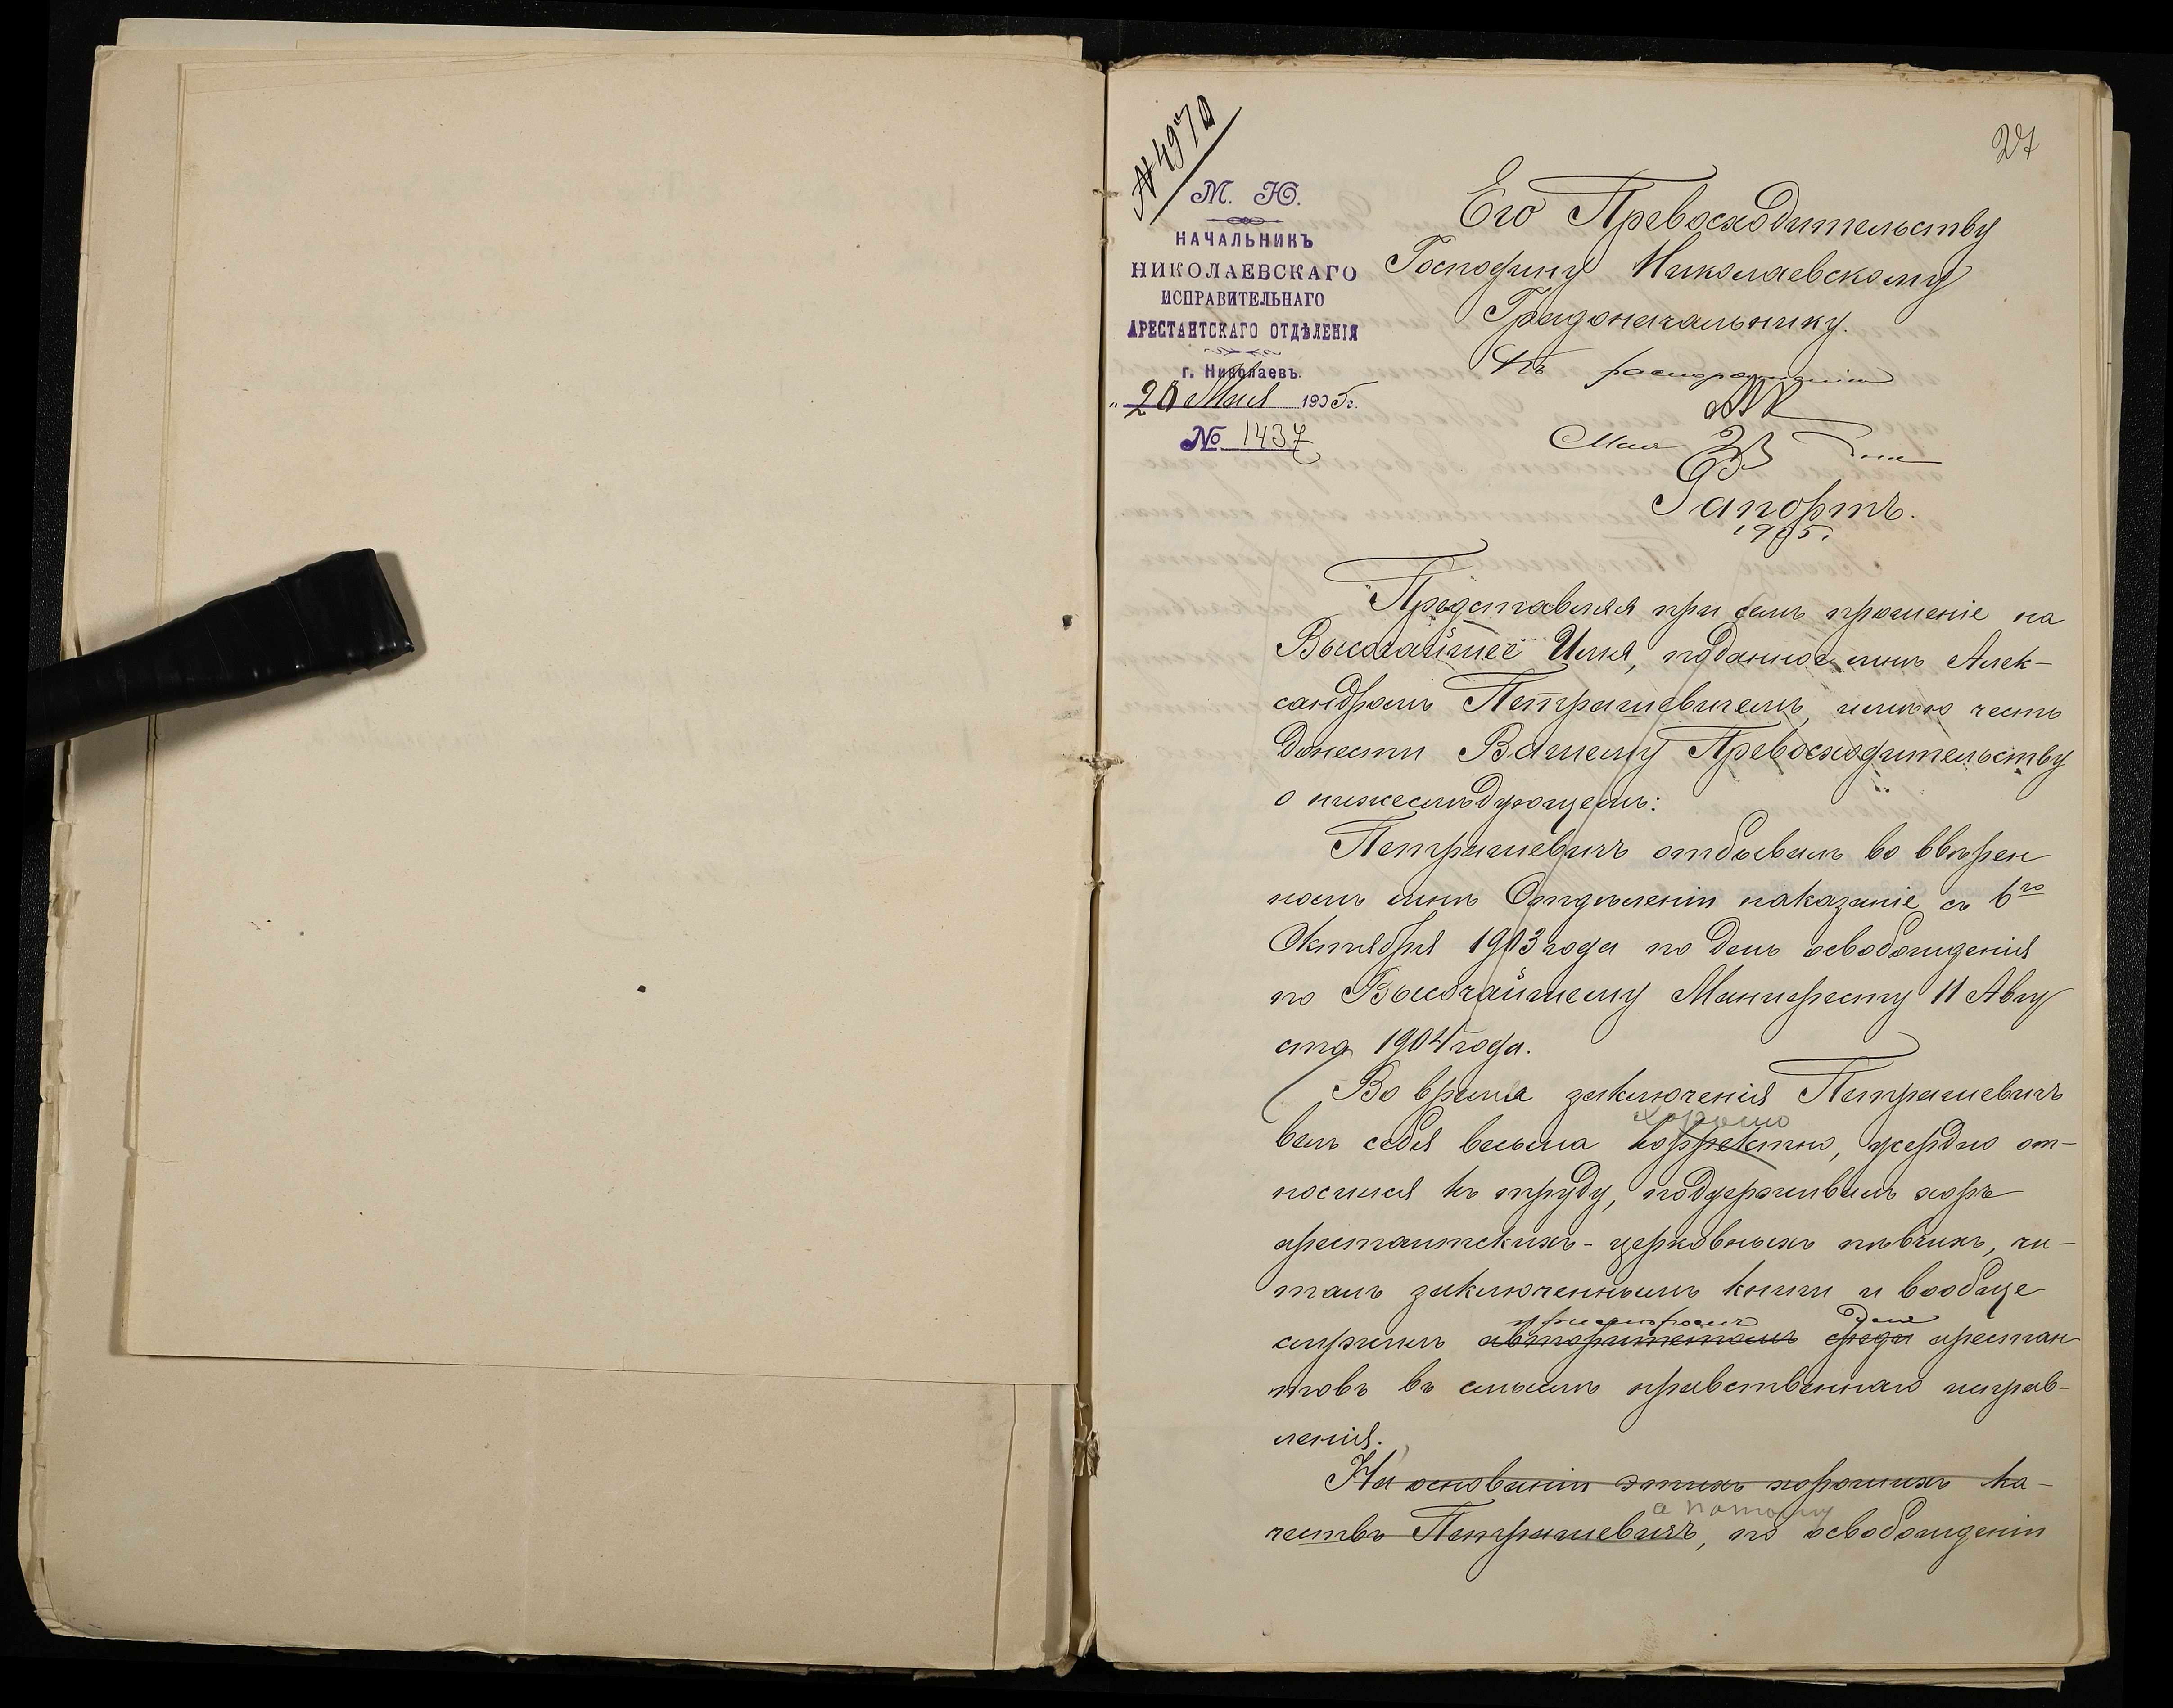 27
№ 4970
М. Ю.
НАЧАЛЬНИКЪ
НИКОЛАЕВСКАГО
ИСПРАВИТЕЛЬНАГО
АРЕСТАНТСКАГО ОТДѢЛЕНІЯ
г. Николаевъ.
„20 Мая 1905г.
№ 1437
Его Превосходительству
Господину Николаевскому
Градоначальнику.
Къ распоряженію
Мая 23 дня
Рапортъ.
1905.
Представляя при семъ прошеніе на
Высочайшее Имя, поданное мнѣ Алек-
сандромъ Петрашевичемъ, имѣю честь
донести Вашему Превосходительству
о нижеслѣдующемъ:
Петрашевичъ отбывалъ во ввѣрен
номъ мнѣ Отдѣленіи наказаніе съ 6го
Октября 1903 года по день освобожденія
по Высочайшему Манифесту 11 Авгу
ста 1904 года.
Во время заключенія Петрашевичъ
хорошо
велъ себя весьма корректно, усердно от-
носился къ труду, поддерживалъ хоръ
арестантскихъ-церковныхъ пѣвчихъ, чи-
талъ заключеннымъ книги и вообще
примѣромъ для
служилъ авторитетомъ среди арестан
товъ въ смыслѣ нравственнаго исправ-
ленія.
На основаніи этихъ хорошихъ ка-
а потому
чествъ Петрашевичъ, по освобожденіи